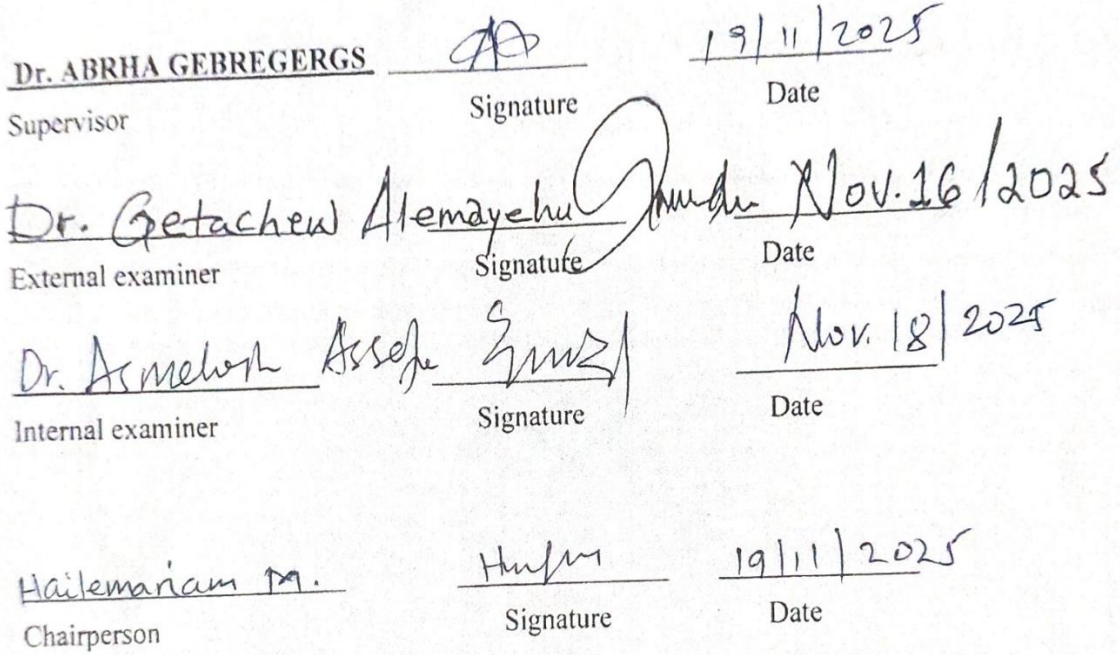 Dr. ABRHA GEBREGERGS 19/11/2025
Supervisor Signature Date
Dr. Getachew Alemayehu Nov. 16/2025
External examiner Signature Date
Dr. Asmelash Assefa Nov. 18/2025
Internal examiner Signature Date
Hailemariam M. 19/11/2025
Chairperson Signature Date